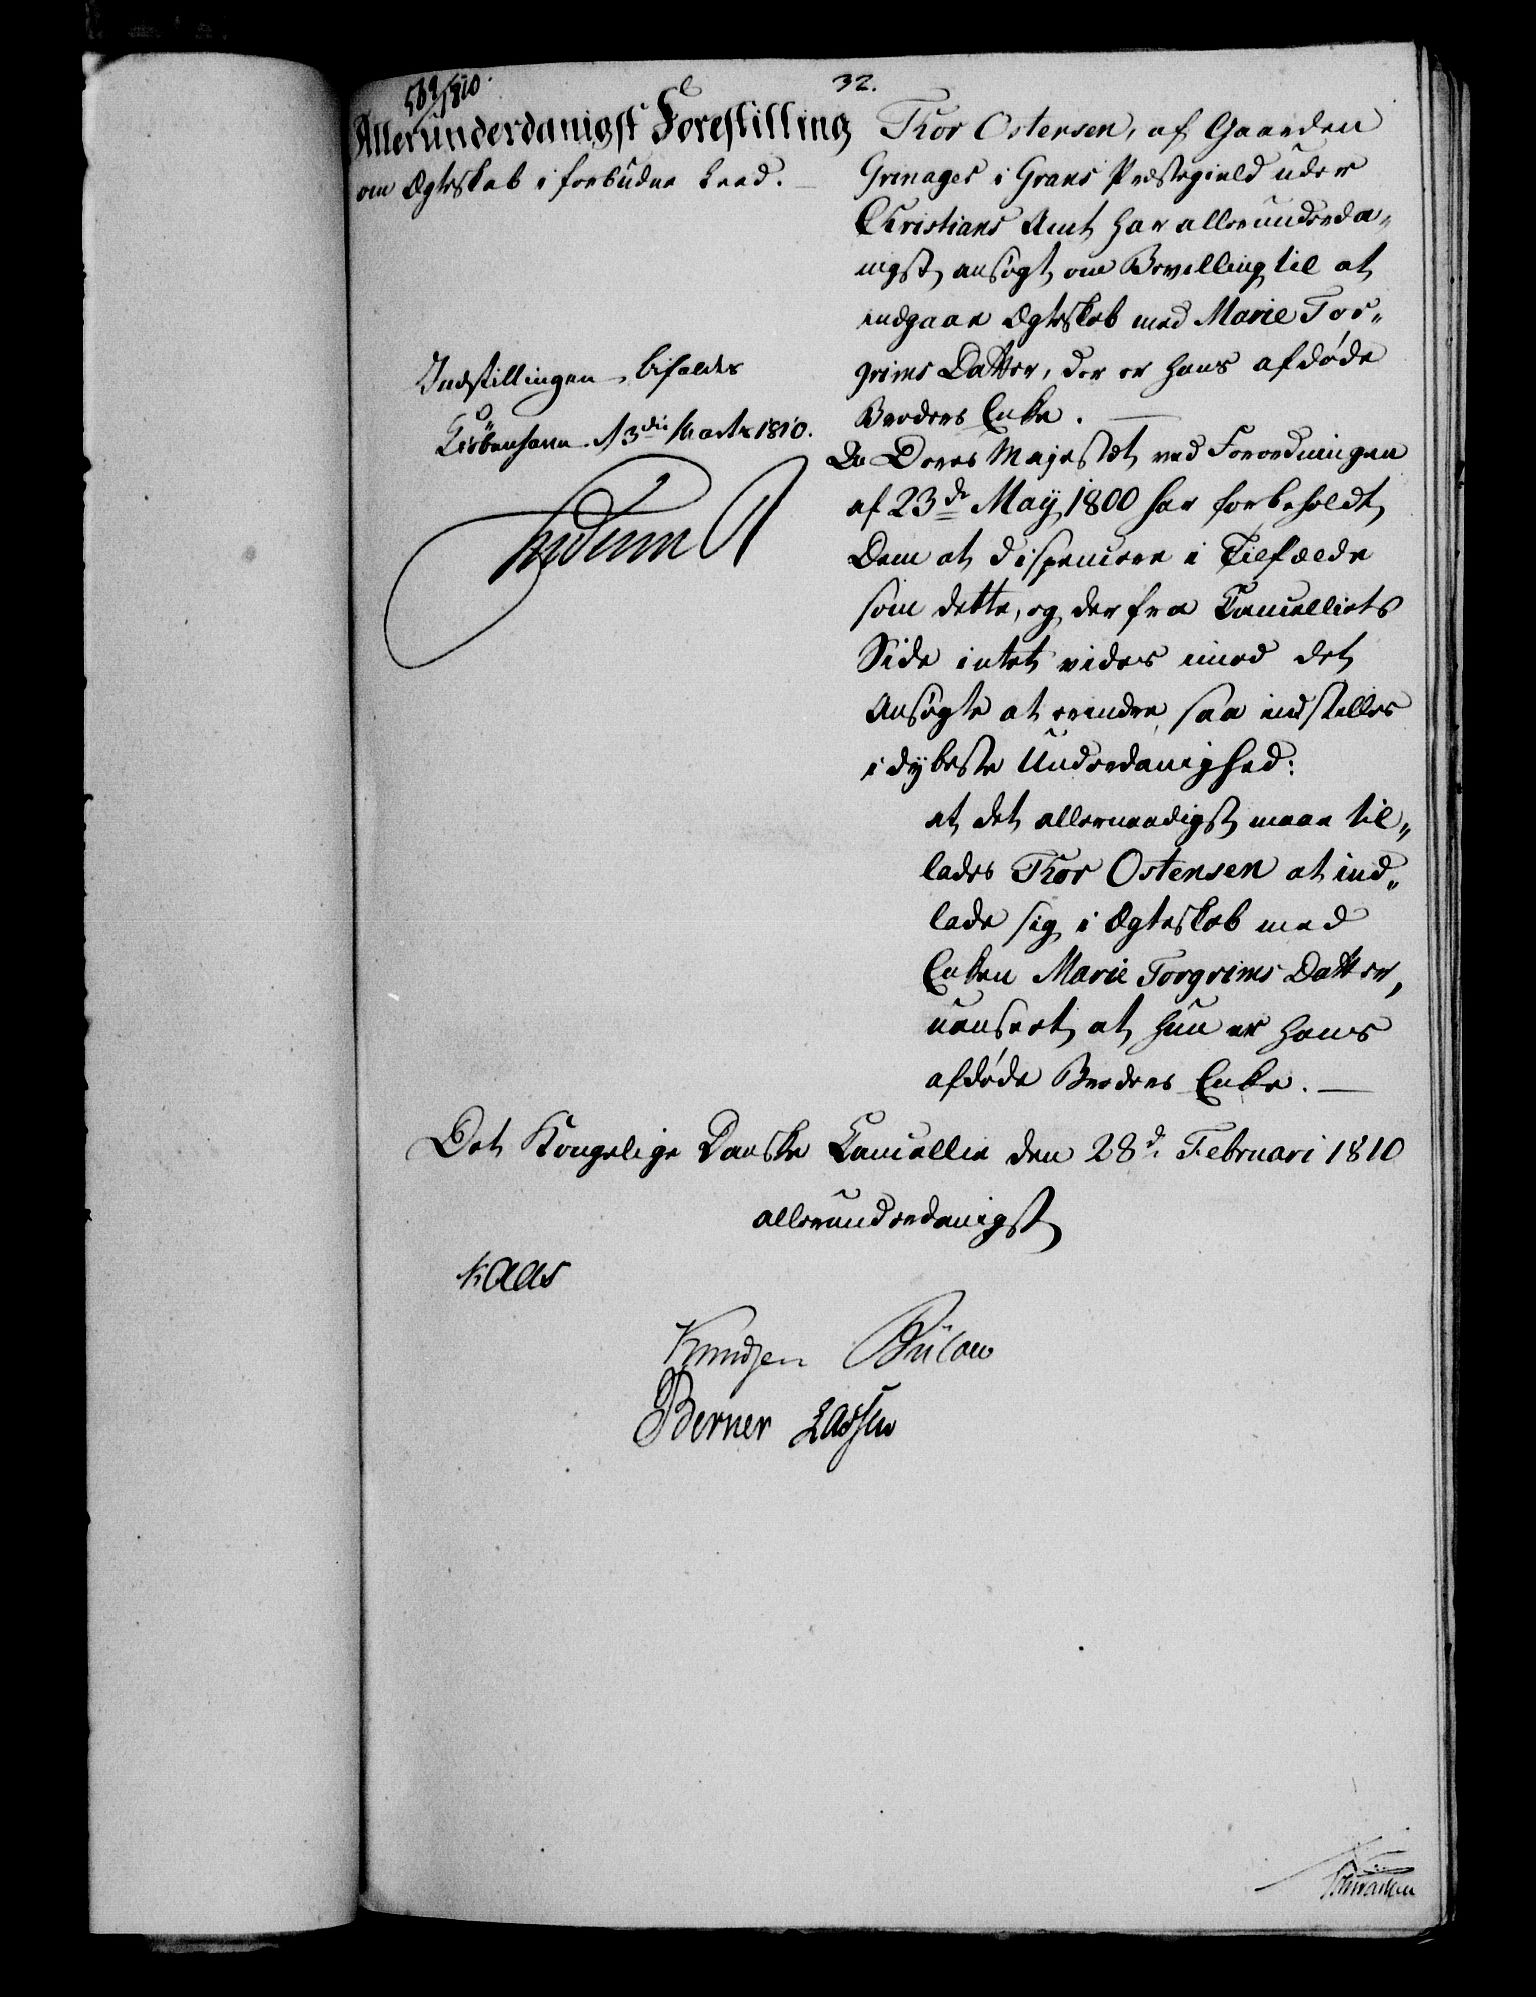 569/1810.
32.
Allerunderdanigst Forestilling
om Ægteskab i forbudne Leed. —
Indstillingen bifaldes
Kiøbenhavn d 3die Martz 1810.
Thor Ostensen, af Gaarden
Grinager i Grans Præstegield uder
Christians Amt har allerunderda„
nigst ansøgt om Bevilling til at
indgaae Ægteskab med Marie Tor„
grims Datter, der er hans afdøde
Broders Enke. —
Da Deres Majestæt ved Forordningen
af 23de May 1800 har forbeholdt
Dem at dispensere i Tilfælde
som dette, og der fra Cancelliets
Side intet vides imod det
Ansøgte at erindre, saa indstilles
i dybeste Underdanighed:
at det allernaadigst maae til„
lades Thor Ostensen at ind„
lade sig i Ægteskab med
Enken Marie Torgrims Datter,
uanseet at hun er hans
afdøde Broders Enke. —
Det Kongelige Danske Cancellie den 28d. Februari 1810
allerunderdanigst
Kaas
Knudsen Bülow
Berner Lassen